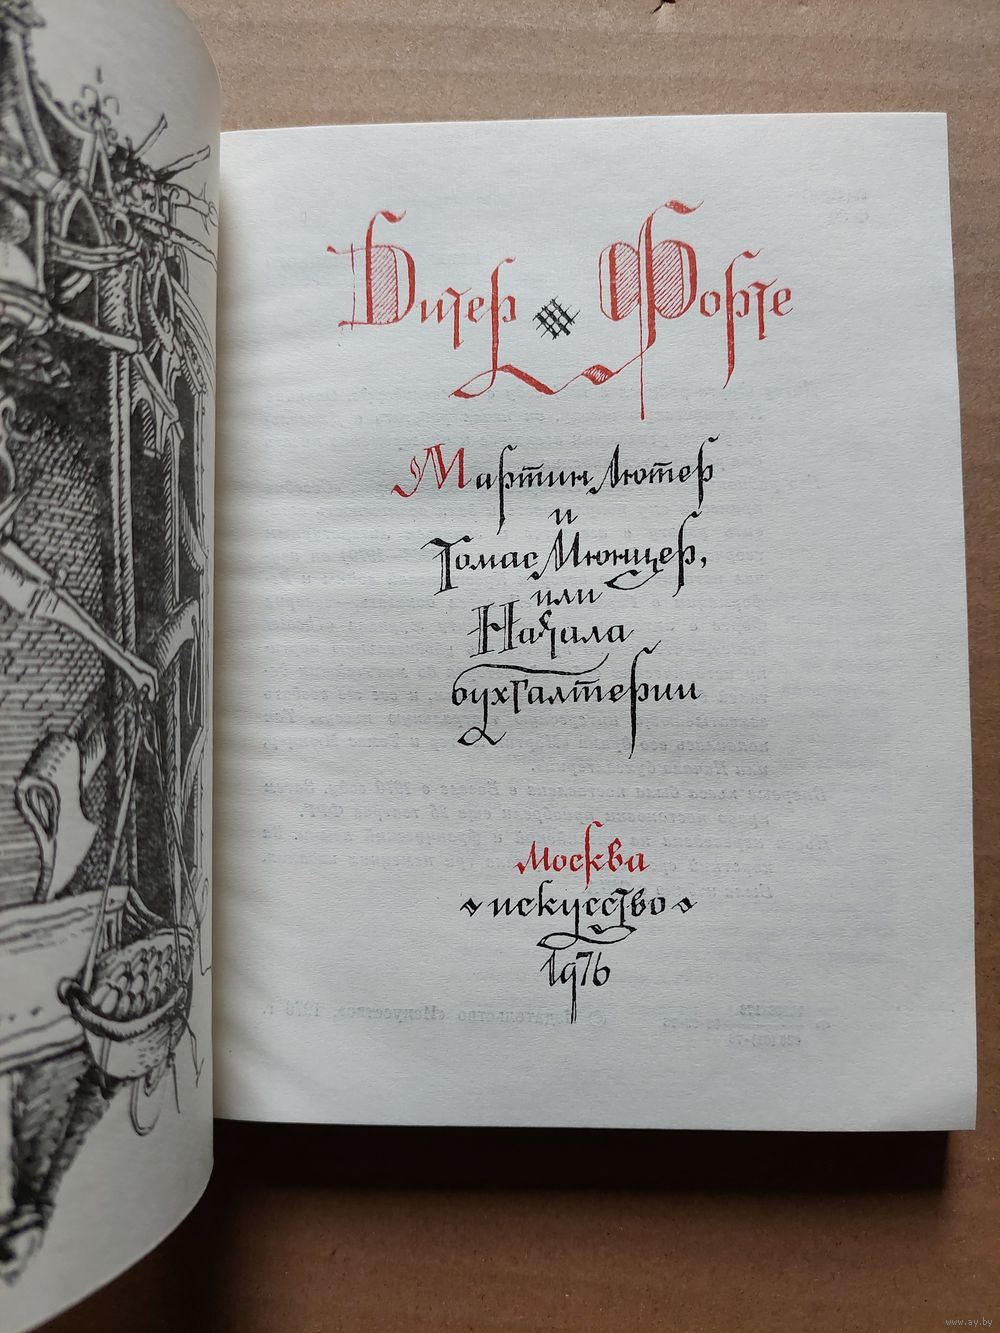 Дитер Форте
Мартин Лютер
и
Томас Мюнцер,
или
Начала
бухгалтерии
Москва
искусство
1976
www.ay.by